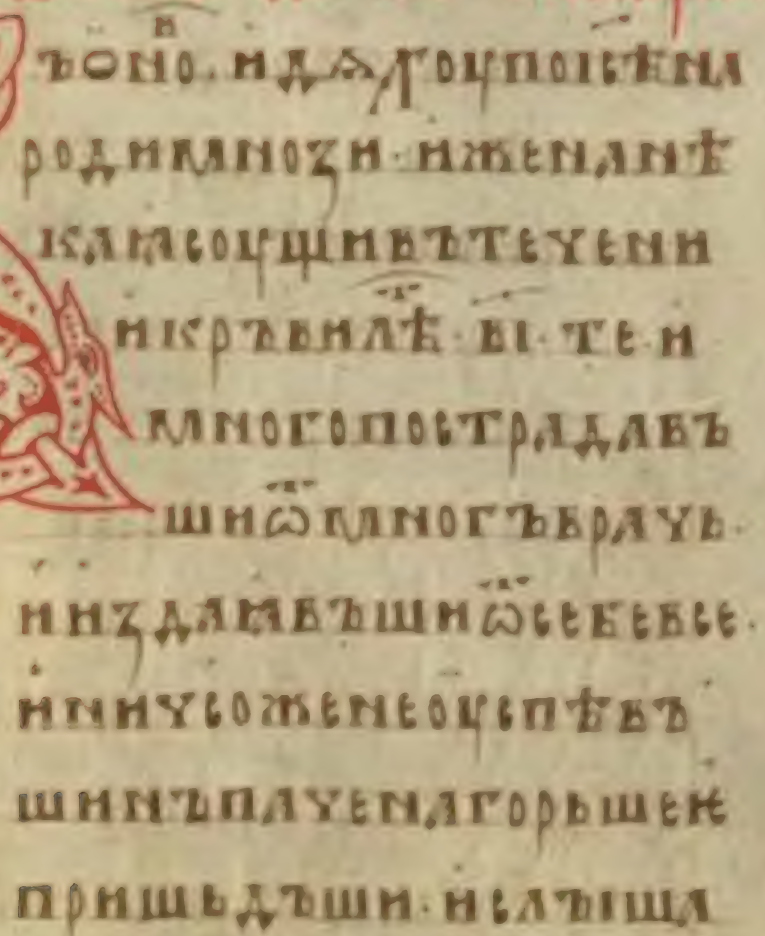 ъоⷩ҇о·идѧхоупоісѣна
родимноꙁи·иженанѣ
каꙗсоущивътечени
икръвилѣⷮ·ві·теи
многопострадавъ
шиѿмногъврачь·
ииꙁдаꙗвъшиѿсебевсе·
иничсоженеоуспѣвъ
шинъпаченагорьшеѥ
пришьдъши·ислъіша